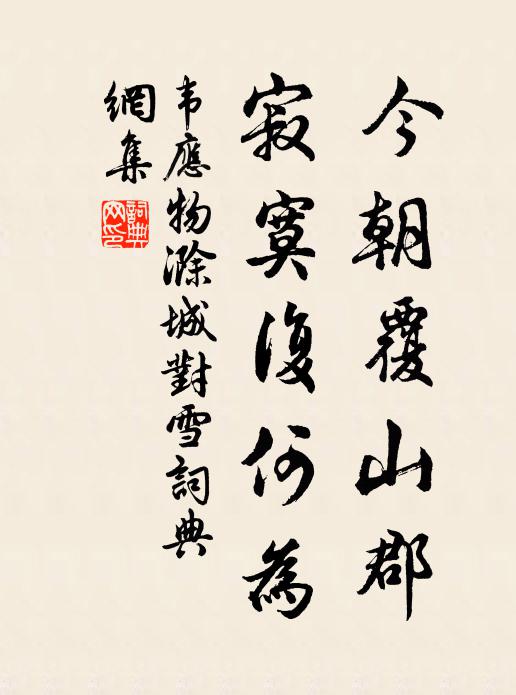 今朝覆山郡
寂寞復何為
韦應物滁城對雪詞典
網集
詞典
网印